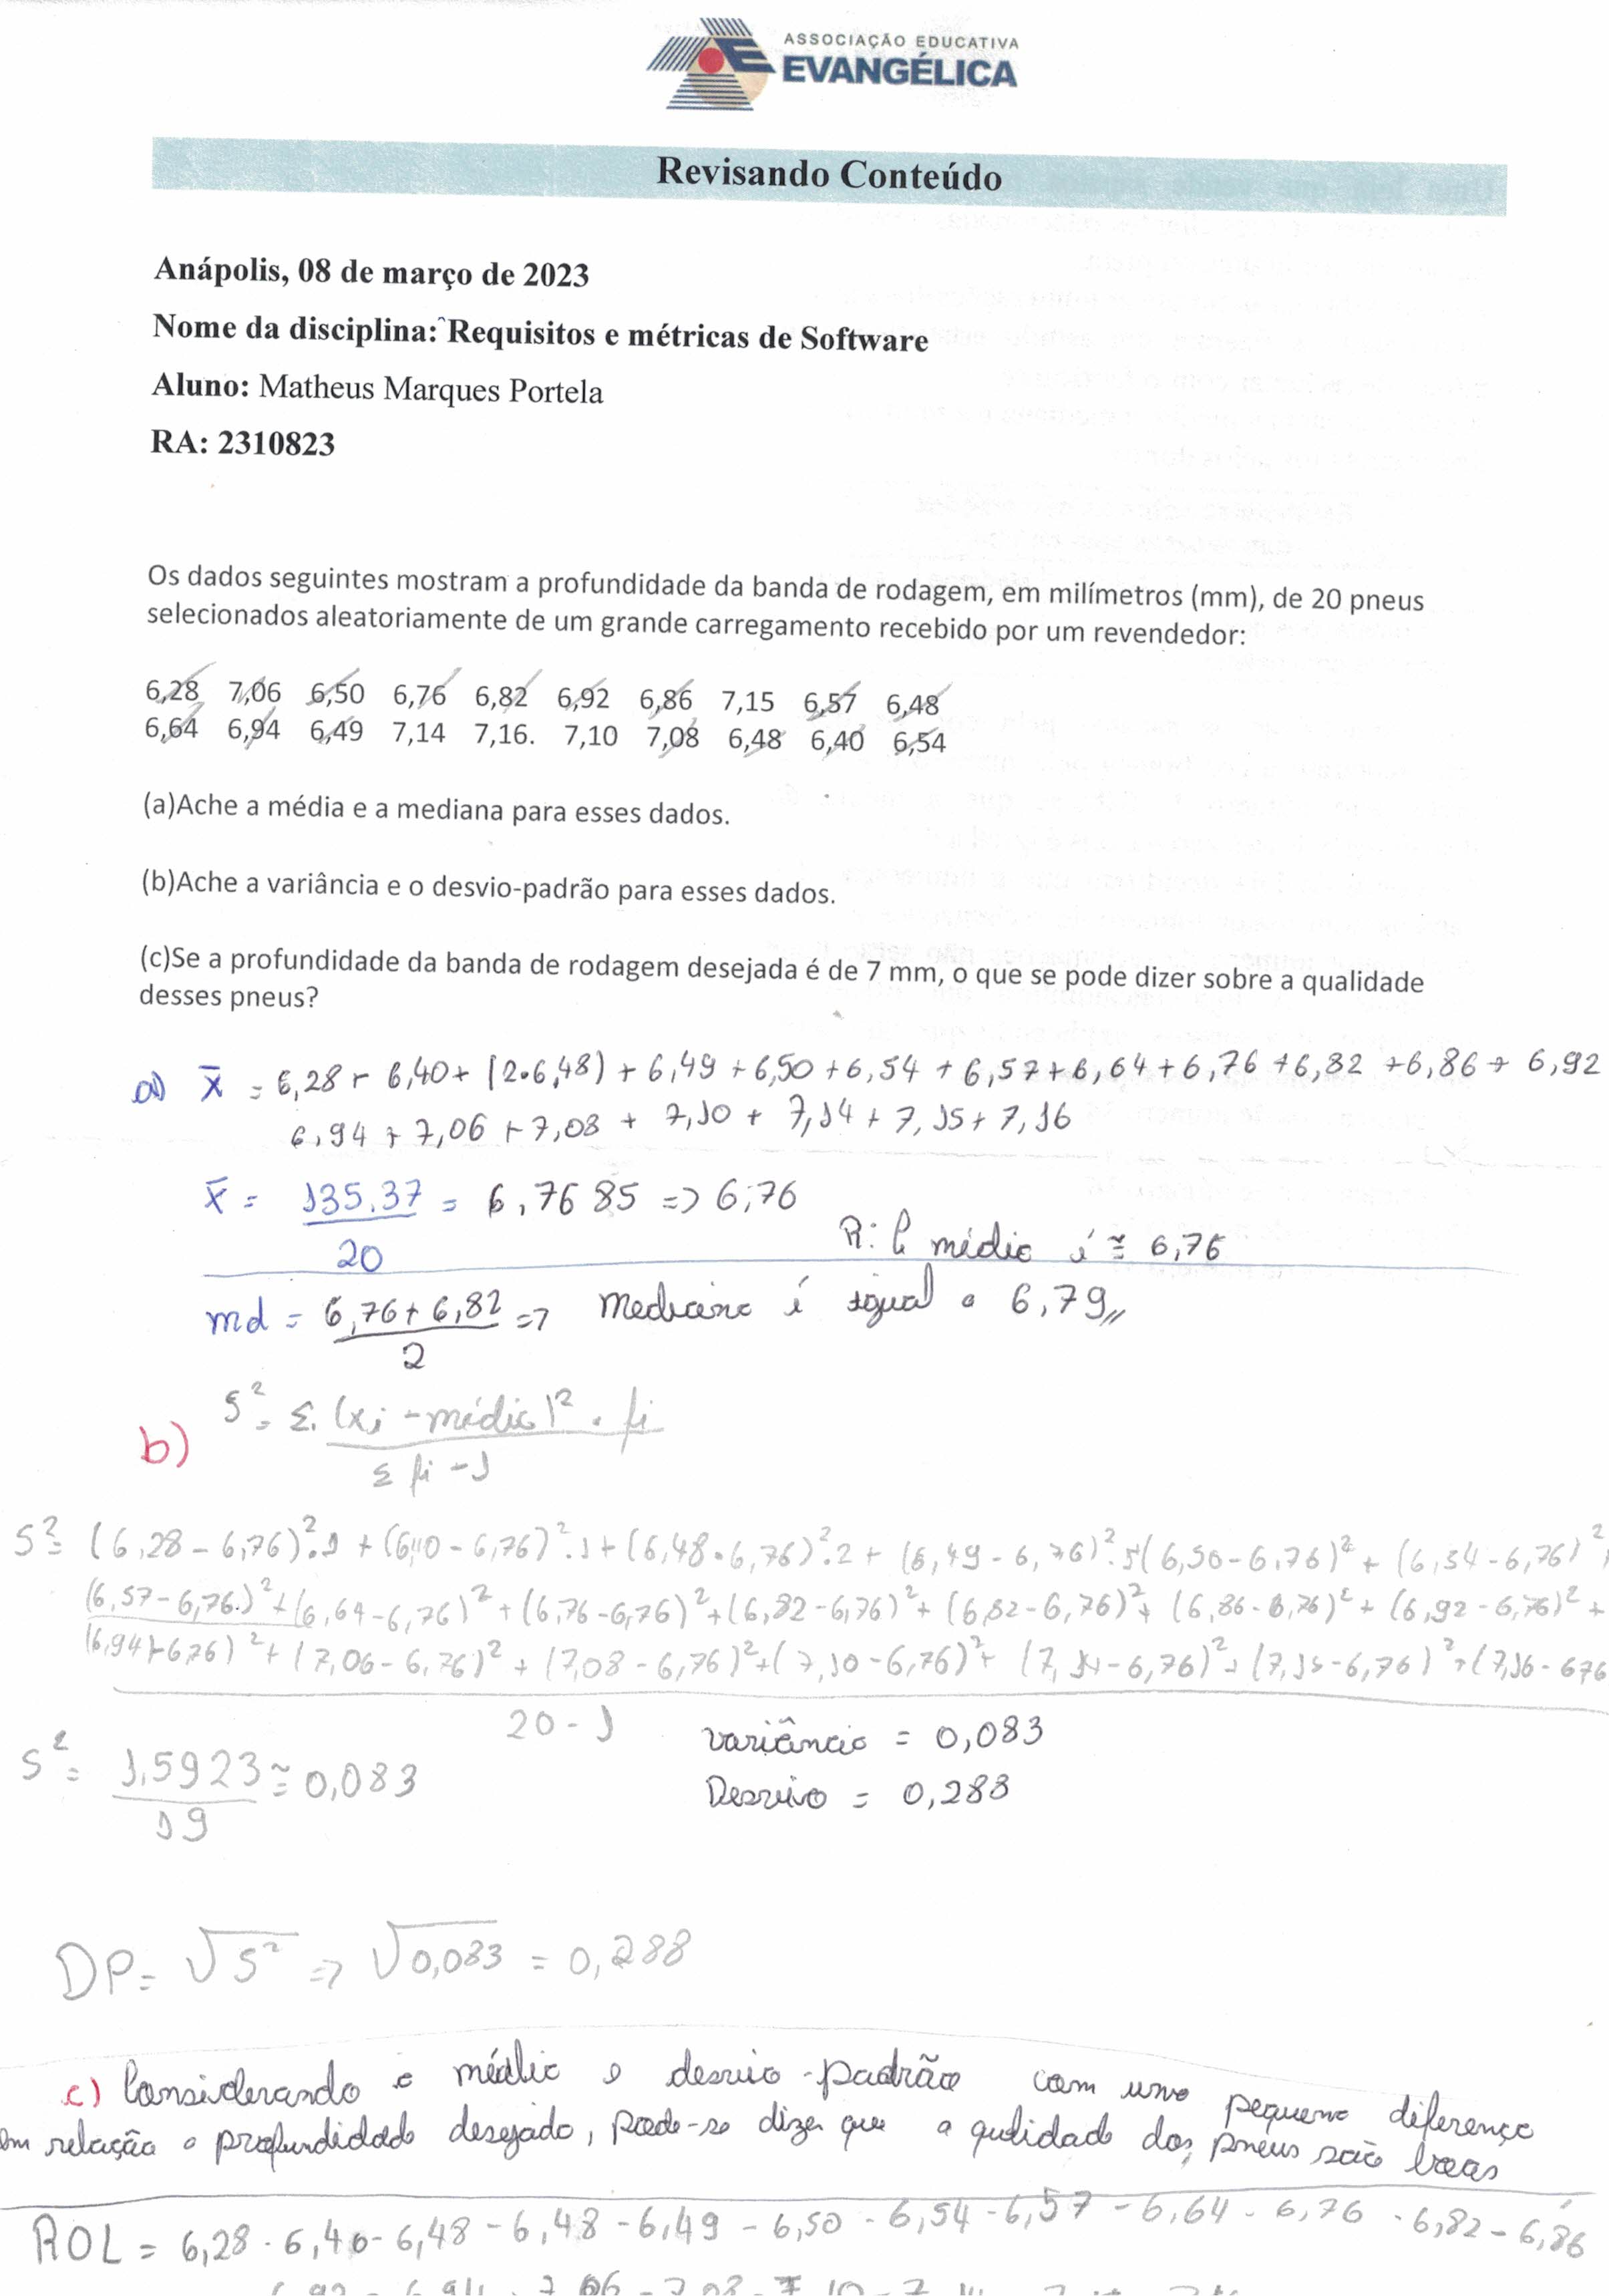 ASSOCIAÇÃO EDUCATIVA
EVANGÉLICA
Revisando Conteúdo
Anápolis, 08 de março de 2023
Nome da disciplina: Requisitos e métricas de Software
Aluno: Matheus Marques Portela
RA: 2310823
Os dados seguintes mostram a profundidade da banda de rodagem, em milímetros (mm), de 20 pneus
selecionados aleatoriamente de um grande carregamento recebido por um revendedor:
6,28 7,06 6,50 6,76 6,82 6,92 6,86 7,15 6,57 6,48
6,64 6,94 6,49 7,14 7,16. 7,10 7,08 6,48 6,40 6,54
(a)Ache a média e a mediana para esses dados.
(b)Ache a variância e o desvio-padrão para esses dados.
(c)Se a profundidade da banda de rodagem desejada é de 7 mm, o que se pode dizer sobre a qualidade
desses pneus?
a) x̄ = 6,28 + 6,40 + (2•6,48) + 6,49 + 6,50 + 6,54 + 6,57 + 6,64 + 6,76 + 6,82 + 6,86 + 6,92
6,94 + 7,06 + 7,08 + 7,10 + 7,14 + 7,15 + 7,16
x̄ = 135,37 = 6,7685 => 6,76
20
R: A média é ≅ 6,76
md = 6,76 + 6,82 => Mediana é igual a 6,79,,
2
b) S² = Σ (xi - média)² . fi
Σ fi - 1
S² = (6,28 - 6,76)².1 + (6,40 - 6,76)².1 + (6,48 • 6,76)².2 + (6,49 - 6,76)². + (6,50 - 6,76)² + (6,54 - 6,76)² +
(6,57 - 6,76)² + (6,64 - 6,76)² + (6,76 - 6,76)² + (6,82 - 6,76)² + (6,82 - 6,76)² + (6,86 - 6,76)² + (6,92 - 6,76)² +
(6,94 - 6,76)² + (7,06 - 6,76)² + (7,08 - 6,76)² + (7,10 - 6,76)² + (7,14 - 6,76)² + (7,15 - 6,76)² + (7,16 - 676
20 - 1
S² = 1,5923 ≅ 0,083
19
variância = 0,083
Desvivo = 0,288
DP = √S² => √0,083 = 0,288
c) Considerando a média e desvio-padrão com uma pequena diferença
em relação a profundidade desejada, pode-se dizer que a qulidade dos pneus são boas
ROL = 6,28 - 6,40 - 6,48 - 6,48 - 6,49 - 6,50 - 6,54 - 6,57 - 6,64 - 6,76 - 6,82 - 6,86